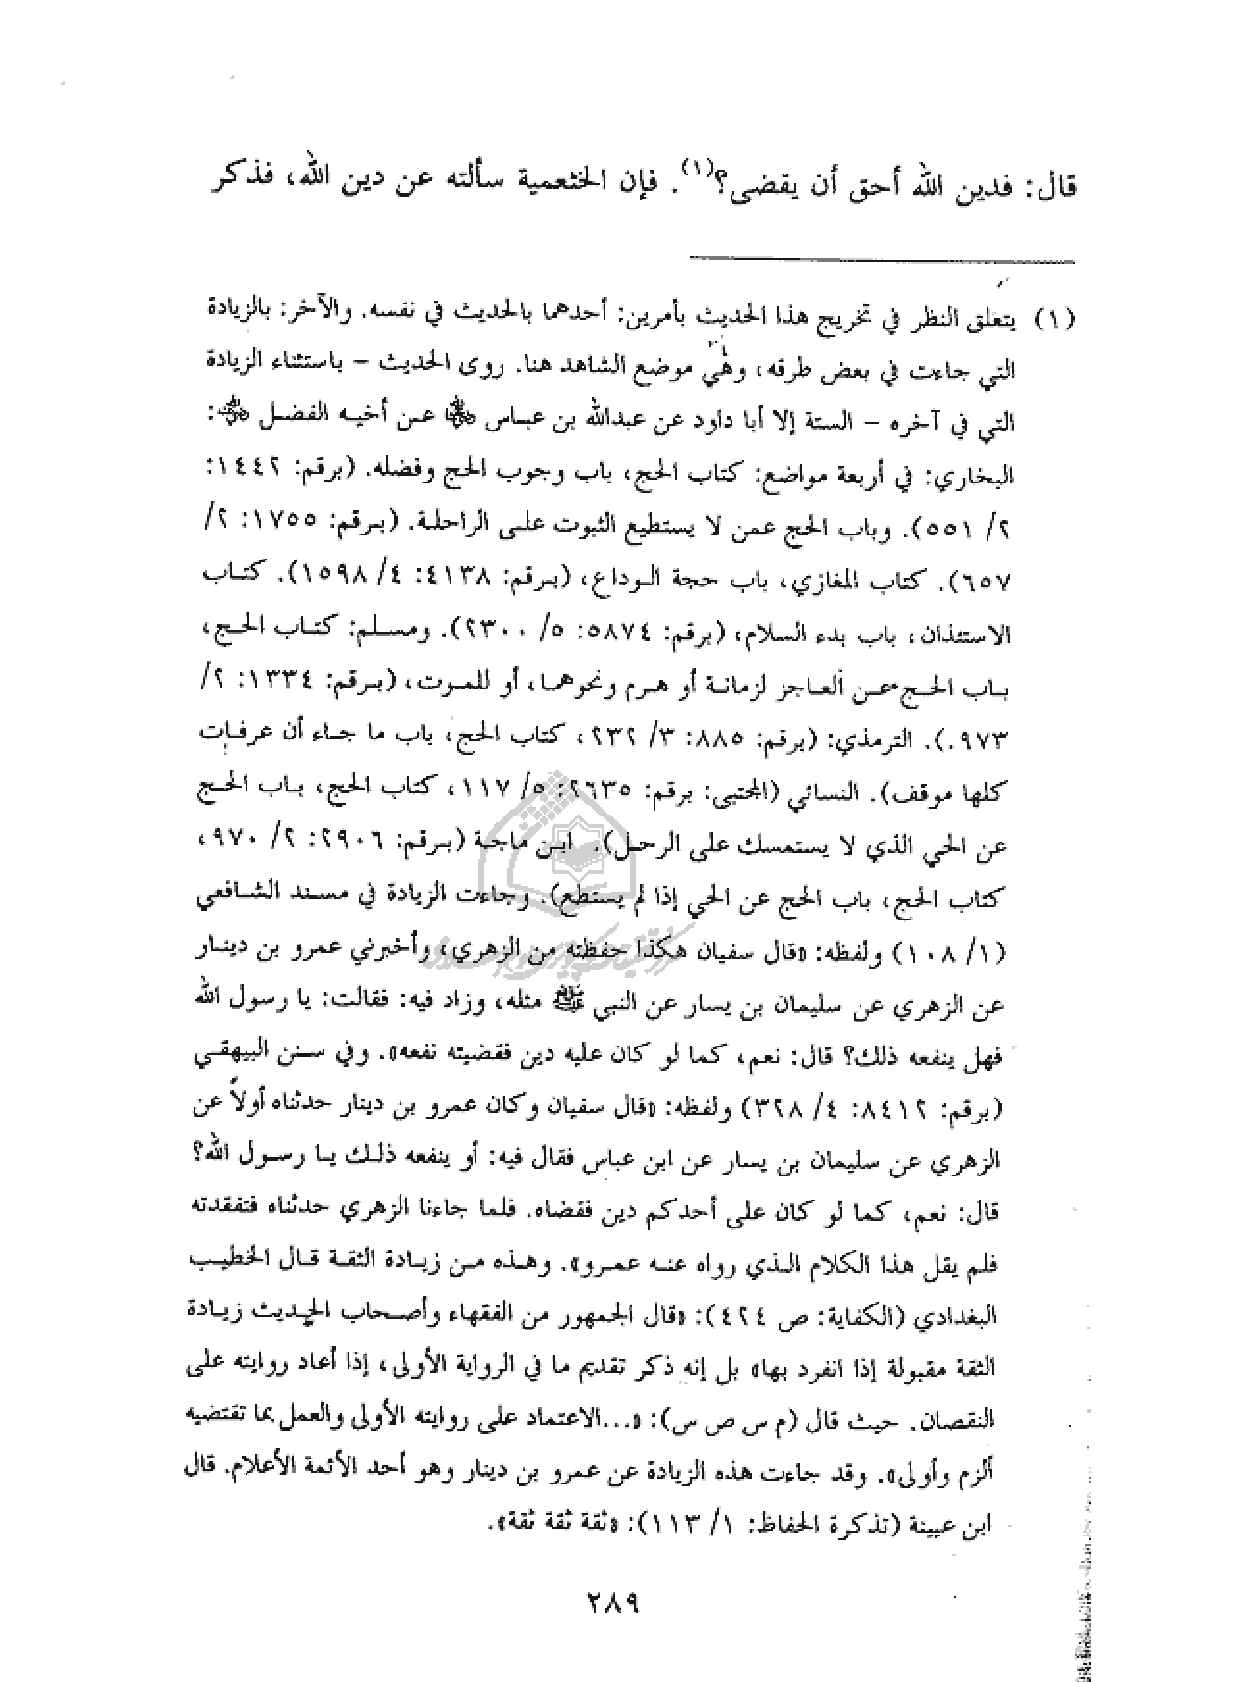 قال: فدين الله أحق أن يقضى؟(١). فإن الخثعمية سألته عن دين الله، فذكر
(١) يتعلق النظر في تخريج هذا الحديث بأمرين: أحدهما بالحديث في نفسه. والآخر: بالزيادة
التي جاءت في بعض طرقه، وهي موضع الشاهد هنا. روى الحديث – باستثناء الزيادة
التي في آخره – الستة إلا أبا داود عن عبدالله بن عباس ﵄ عن أخيه الفضل ﵁:
البخاري: في أربعة مواضع: كتاب الحج، باب وجوب الحج وفضله. (برقم: ١٤٤٢:
٢/ ٥٥١). وباب الحج عمن لا يستطيع الثبوت على الراحلة. (برقم: ١٧٥٥: ٢/
٦٥٧). كتاب المغازي، باب حجة الوداع، (برقم: ٤١٣٨: ٤/ ١٥٩٨). كتاب
الاستئذان، باب بدء السلام، (برقم: ٥٨٧٤: ٥/ ٢٣٠٠). ومسلم: كتاب الحج،
باب الحج عن العاجز لزمانة أو هرم ونحوهما، أو للموت، (برقم: ١٣٣٤: ٢/
٩٧٣.). الترمذي: (برقم: ٨٨٥: ٣/ ٢٣٢، كتاب الحج، باب ما جاء أن عرفات
كلها موقف). النسائي (المجتبى: برقم: ٢٦٣٥: ٥/ ١١٧، كتاب الحج، باب الحج
عن الحي الذي لا يستمسك على الرحل). ابن ماجة (برقم: ٢٩٠٦: ٢/ ٩٧٠،
كتاب الحج، باب الحج عن الحي إذا لم يستطع). وجاءت الزيادة في مسند الشافعي
(١/ ١٠٨) ولفظه: «قال سفيان هكذا حفظته من الزهري، وأخبرني عمرو بن دينار
عن الزهري عن سليمان بن يسار عن النبي ﷺ مثله، وزاد فيه: فقالت: يا رسول الله
فهل ينفعه ذلك؟ قال: نعم، كما لو كان عليه دين فقضيته نفعه». وفي سنن البيهقي
(برقم: ٨٤١٢: ٤/ ٣٢٨) ولفظه: «قال سفيان وكان عمرو بن دينار حدثناه أولاً عن
الزهري عن سليمان بن يسار عن ابن عباس فقال فيه: أو ينفعه ذلك يا رسول الله؟
قال: نعم، كما لو كان على أحدكم دين فقضاه. فلما جاءنا الزهري حدثناه فتفقدته
فلم يقل هذا الكلام الذي رواه عنه عمرو». وهذه من زيادة الثقة قال الخطيب
البغدادي (الكفاية: ص ٤٢٤): «قال الجمهور من الفقهاء وأصحاب الحديث زيادة
الثقة مقبولة إذا انفرد بها» بل إنه ذكر تقديم ما في الرواية الأولى، إذا أعاد روايته على
النقصان. حيث قال (م س ص س): «...الاعتماد على روايته الأولى والعمل بما تقتضيه
ألزم وأولى». وقد جاءت هذه الزيادة عن عمرو بن دينار وهو أحد الأئمة الأعلام. قال
ابن عيينة (تذكرة الحفاظ: ١/ ١١٣): «ثقة ثقة ثقة».
٢٨٩